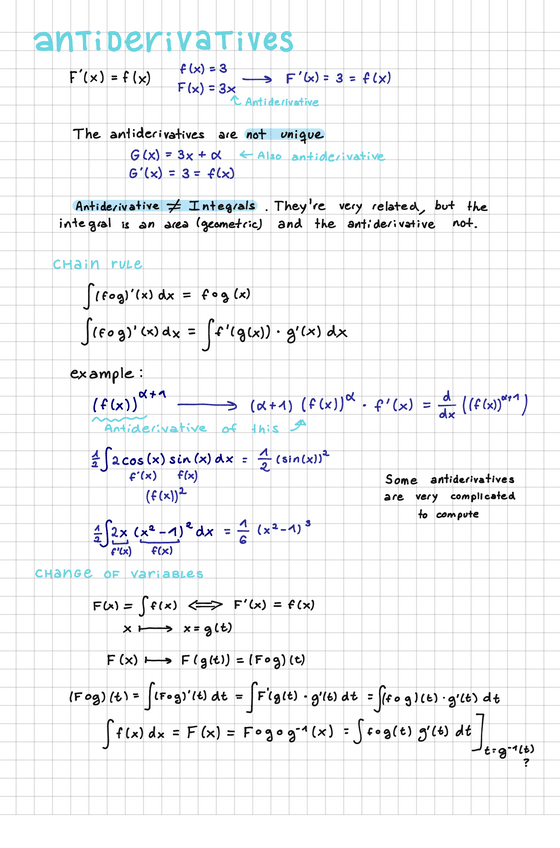 antiderivatives
F'(x) = f(x)
f(x) = 3
F(x) = 3x ⟶ F'(x) = 3 = f(x)
Antiderivative
The antiderivatives are not unique
G(x) = 3x + α ← Also antiderivative
G'(x) = 3 = f(x)
Antiderivative ≠ Integrals. They're very related, but the
integral is an area (geometric) and the antiderivative not.
Chain rule
∫(f∘g)'(x) dx = f∘g (x)
∫(f∘g)'(x) dx = ∫f'(g(x)) · g'(x) dx
example:
(f(x))^(α+1) ⟶ (α+1) (f(x))^α · f'(x) = d/dx ((f(x))^(α+1))
Antiderivative of this
1/2 ∫2cos(x) sin(x) dx = 1/2 (sin(x))²
f'(x) f(x)
(f(x))²
Some antiderivatives
are very complicated
to compute
1/2 ∫2x (x²-1)² dx = 1/6 (x²-1)³
f'(x) f(x)
Change of variables
F(x) = ∫f(x) ⟺ F'(x) = f(x)
x ⟼ x = g(t)
F(x) ⟼ F(g(t)) = (F∘g)(t)
(F∘g)(t) = ∫(F∘g)'(t) dt = ∫F'(g(t) · g'(t) dt = ∫(f∘g)(t) · g'(t) dt
∫f(x) dx = F(x) = F∘g∘g⁻¹(x) = ∫f∘g(t) g'(t) dt]
t=g⁻¹(t)
?